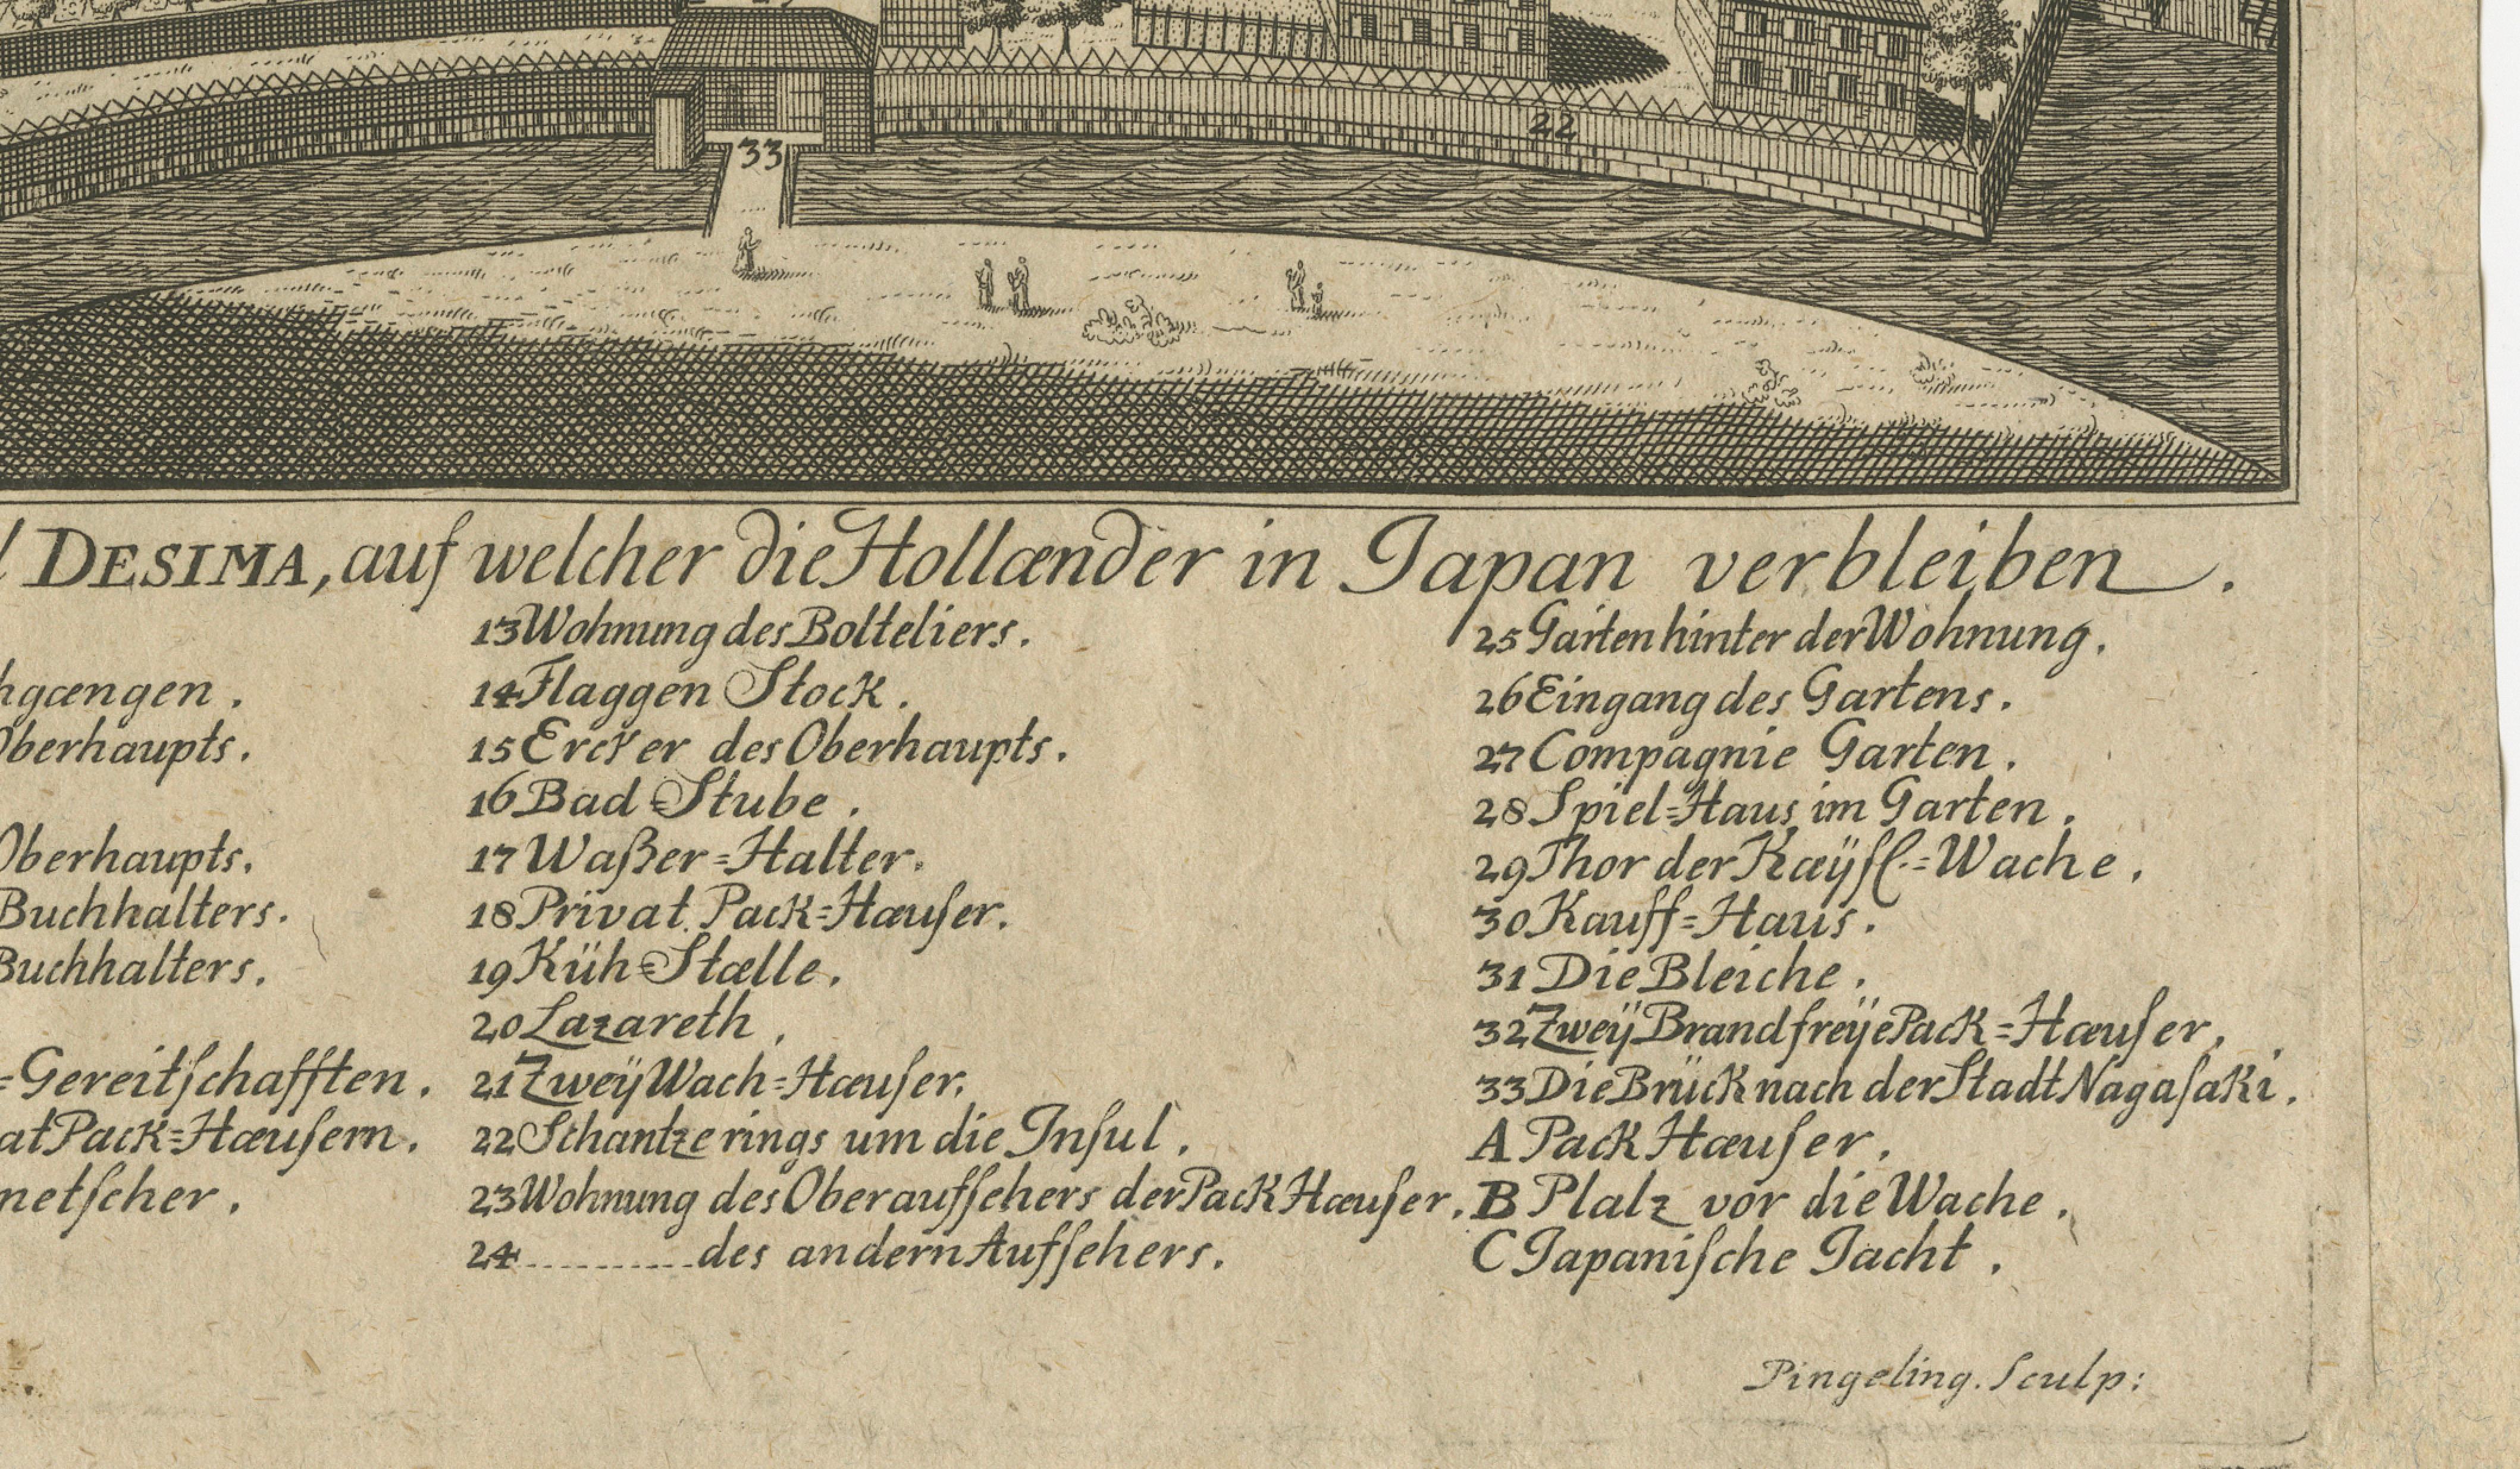 33
22
DESIMA, auf welcher die Hollænder in Japan verbleiben.
hgængen.
Oberhaupts.
Oberhaupts.
Buchhalters.
Buchhalters.
=Gereitſchafften.
at Pack=Hæuſern.
netſcher.
13 Wohnung des Bolteliers.
14 Flaggen Stock.
15 Ercker des Oberhaupts.
16 Bad=Stube.
17 Waßer=Halter.
18 Privat Pack=Hæuſer.
19 Küh=Stælle.
20 Lazareth.
21 Zweÿ Wach=Hæuſer.
22 Schantze rings um die Inſul.
23 Wohnung des Oberaufſehers der Pack Hæuſer.
24 ............ des andern Aufſehers.
25 Garten hinter der Wohnung.
26 Eingang des Gartens.
27 Compagnie Garten.
28 Spiel=Haus im Garten.
29 Thor der Kæÿſl.=Wache.
30 Kauff=Haus.
31 Die Bleiche.
32 Zweÿ Brandfreÿe Pack=Hæuſer.
33 Die Brück nach der Stadt Nagaſaki.
A Pack Hæuſer.
B Platz vor die Wache.
C Japaniſche Jacht.
Pingeling. Sculp: